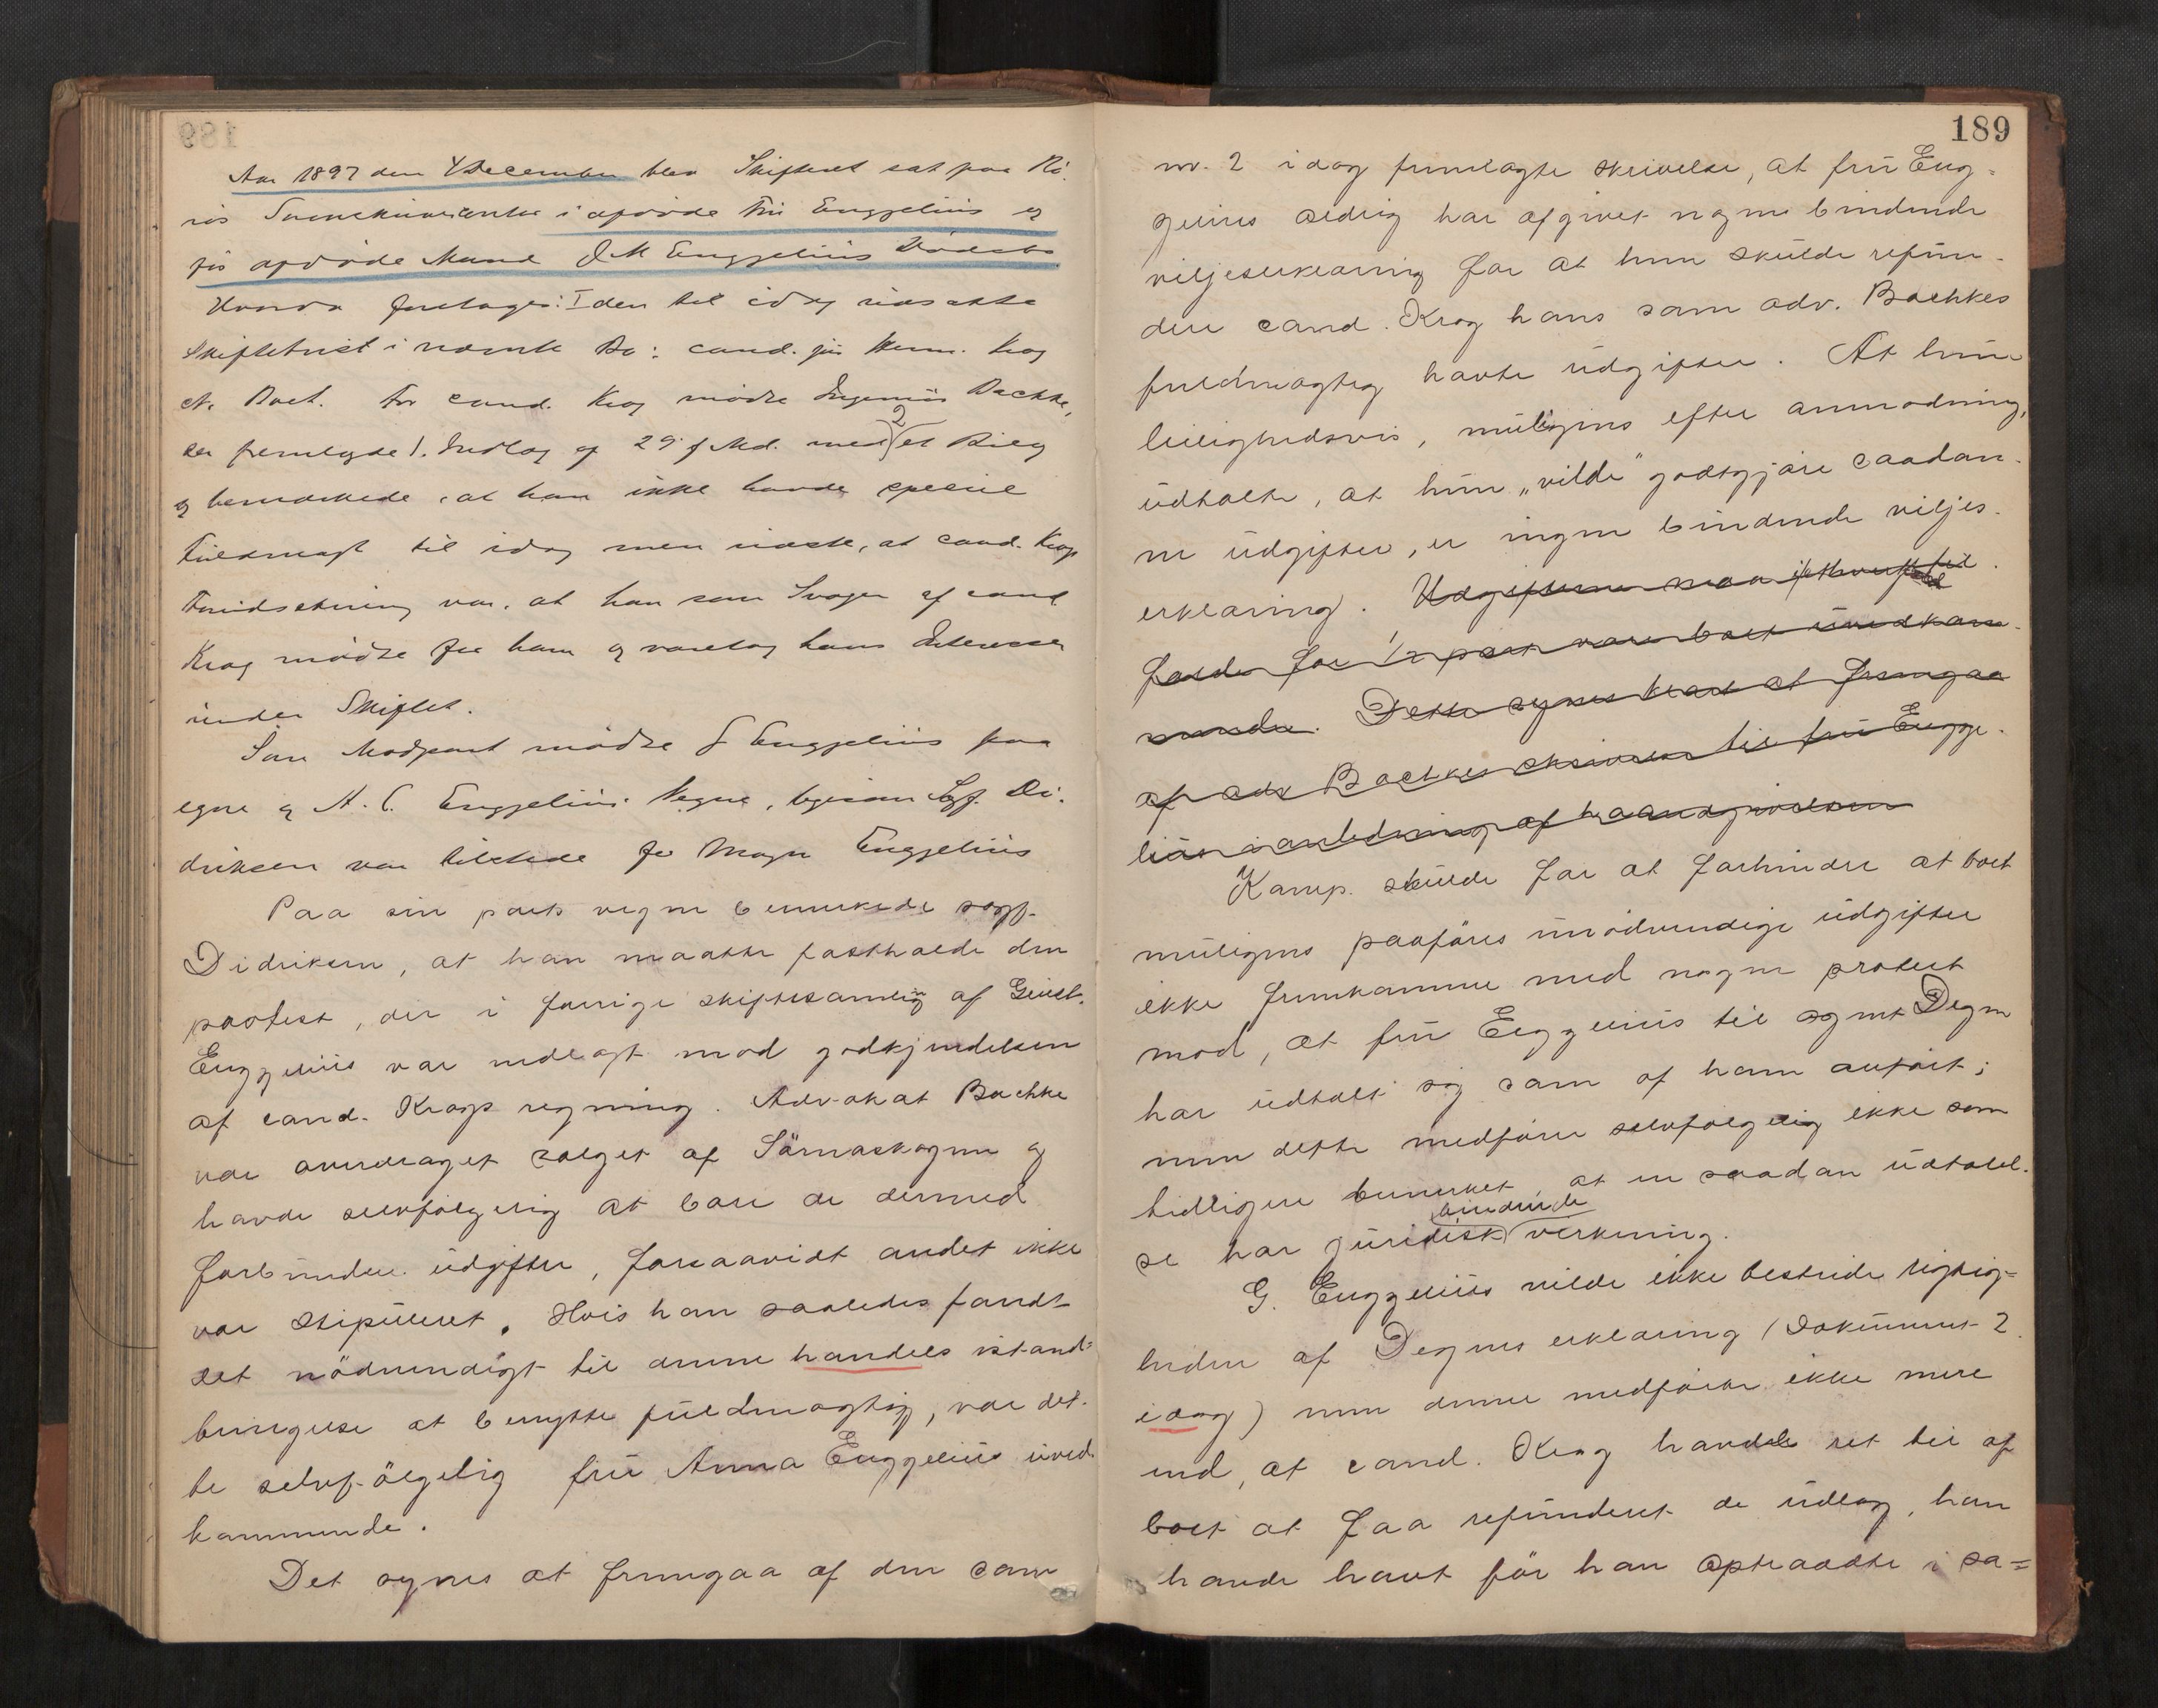 Aar 1897 den 4 December blev Skifteret sat paa Rö-
ros Sorenskriverkontor i afdöde Fru Enggelius og
før afdöde Mand J M Enggelius Dödsbo.
Hvorda foretages: I den til idag udsatte
Skiftetvist i nævnte Bo: cand. jur Herm. Krog
ctr. Boet. For cand. Krog mödte Ingeniör Bachke,
der fremlagde 1. Indlæg af 29 f Md. med 2 et Bilag
og bemærkede, at han ikke havde speciel
Fuldmagt til idag men vidste, at cand. Krogs
Forudsætning var, at han som Svoger af cand
Krog mödte for ham og varetog hans Interesser
under Skiftet.
Som Modpart mödte G Enggelius paa
egne og A. C. Enggelius Vegne, ligesom Sagf. Di-
driksen var tilstede for Magn Enggelius
Paa sin parts vegne bemerkede sagf.
Didriksen, at han maatte fastholde den
protest, der i forrige skiftesamling af Gust.
Enggelius var nedlagt mod godkjendelsen
af cand. Krogs regning. Advokat Bachke
var overdraget salget af Särnaskogene og
havde selvfölgelig at bære de dermed
forbundne udgifter, forsaavidt andet ikke
var stipuleret. Hvis han saaledes fandt
det nödvendigt til denne handels istand-
bringelse at benytte fuldmægtig, var det-
te selvfölgelig fru Anna Enggelius uved-
kommende.
Det synes at fremgaa af den som
189
nr. 2 idag fremlagte skrivelse, at fru Eng-
gelius aldrig har afgivet nogen bindende
viljeserklæring for at hun skulde refun-
dere cand. Krog hans som adv. Bachkes
fuldmægtig havte udgifter. At hun
leilighedsvis, muligens efter anmodning,
udtalte, at hun „vilde“ godtgjøre saadan-
ne udgifter, er ingen bindende viljes-
erklæring. Udgifterne maa ialfald
for 1/2 part være boet uvedkom-
mende. Dette synes klart at fremgaa
af adv Bachkes skrivelse til fru Engge-
lius i anledning af haandgivelsen
Komp. skulde for at forhindre at boet
muligens paaföres unödvendige udgifter
ikke fremkomme med nogen protest
mod, at fru Enggelius til agent Degn
har udtalt sig som af ham anfört;
men dette medförer selvfölgelig ikke som
tidligere bemerket, at en saadan udtalel-
se har juridisk bindende verkning.
G. Enggelius vilde ikke bestride rigtig-
heden af Degnes erklæring (Dokument 2
idag) men denne medförte ikke mere
end, at cand. Krog havde ret til af
boet at faa refunderet de udlæg, han
havde havt för han optraadte i sa-